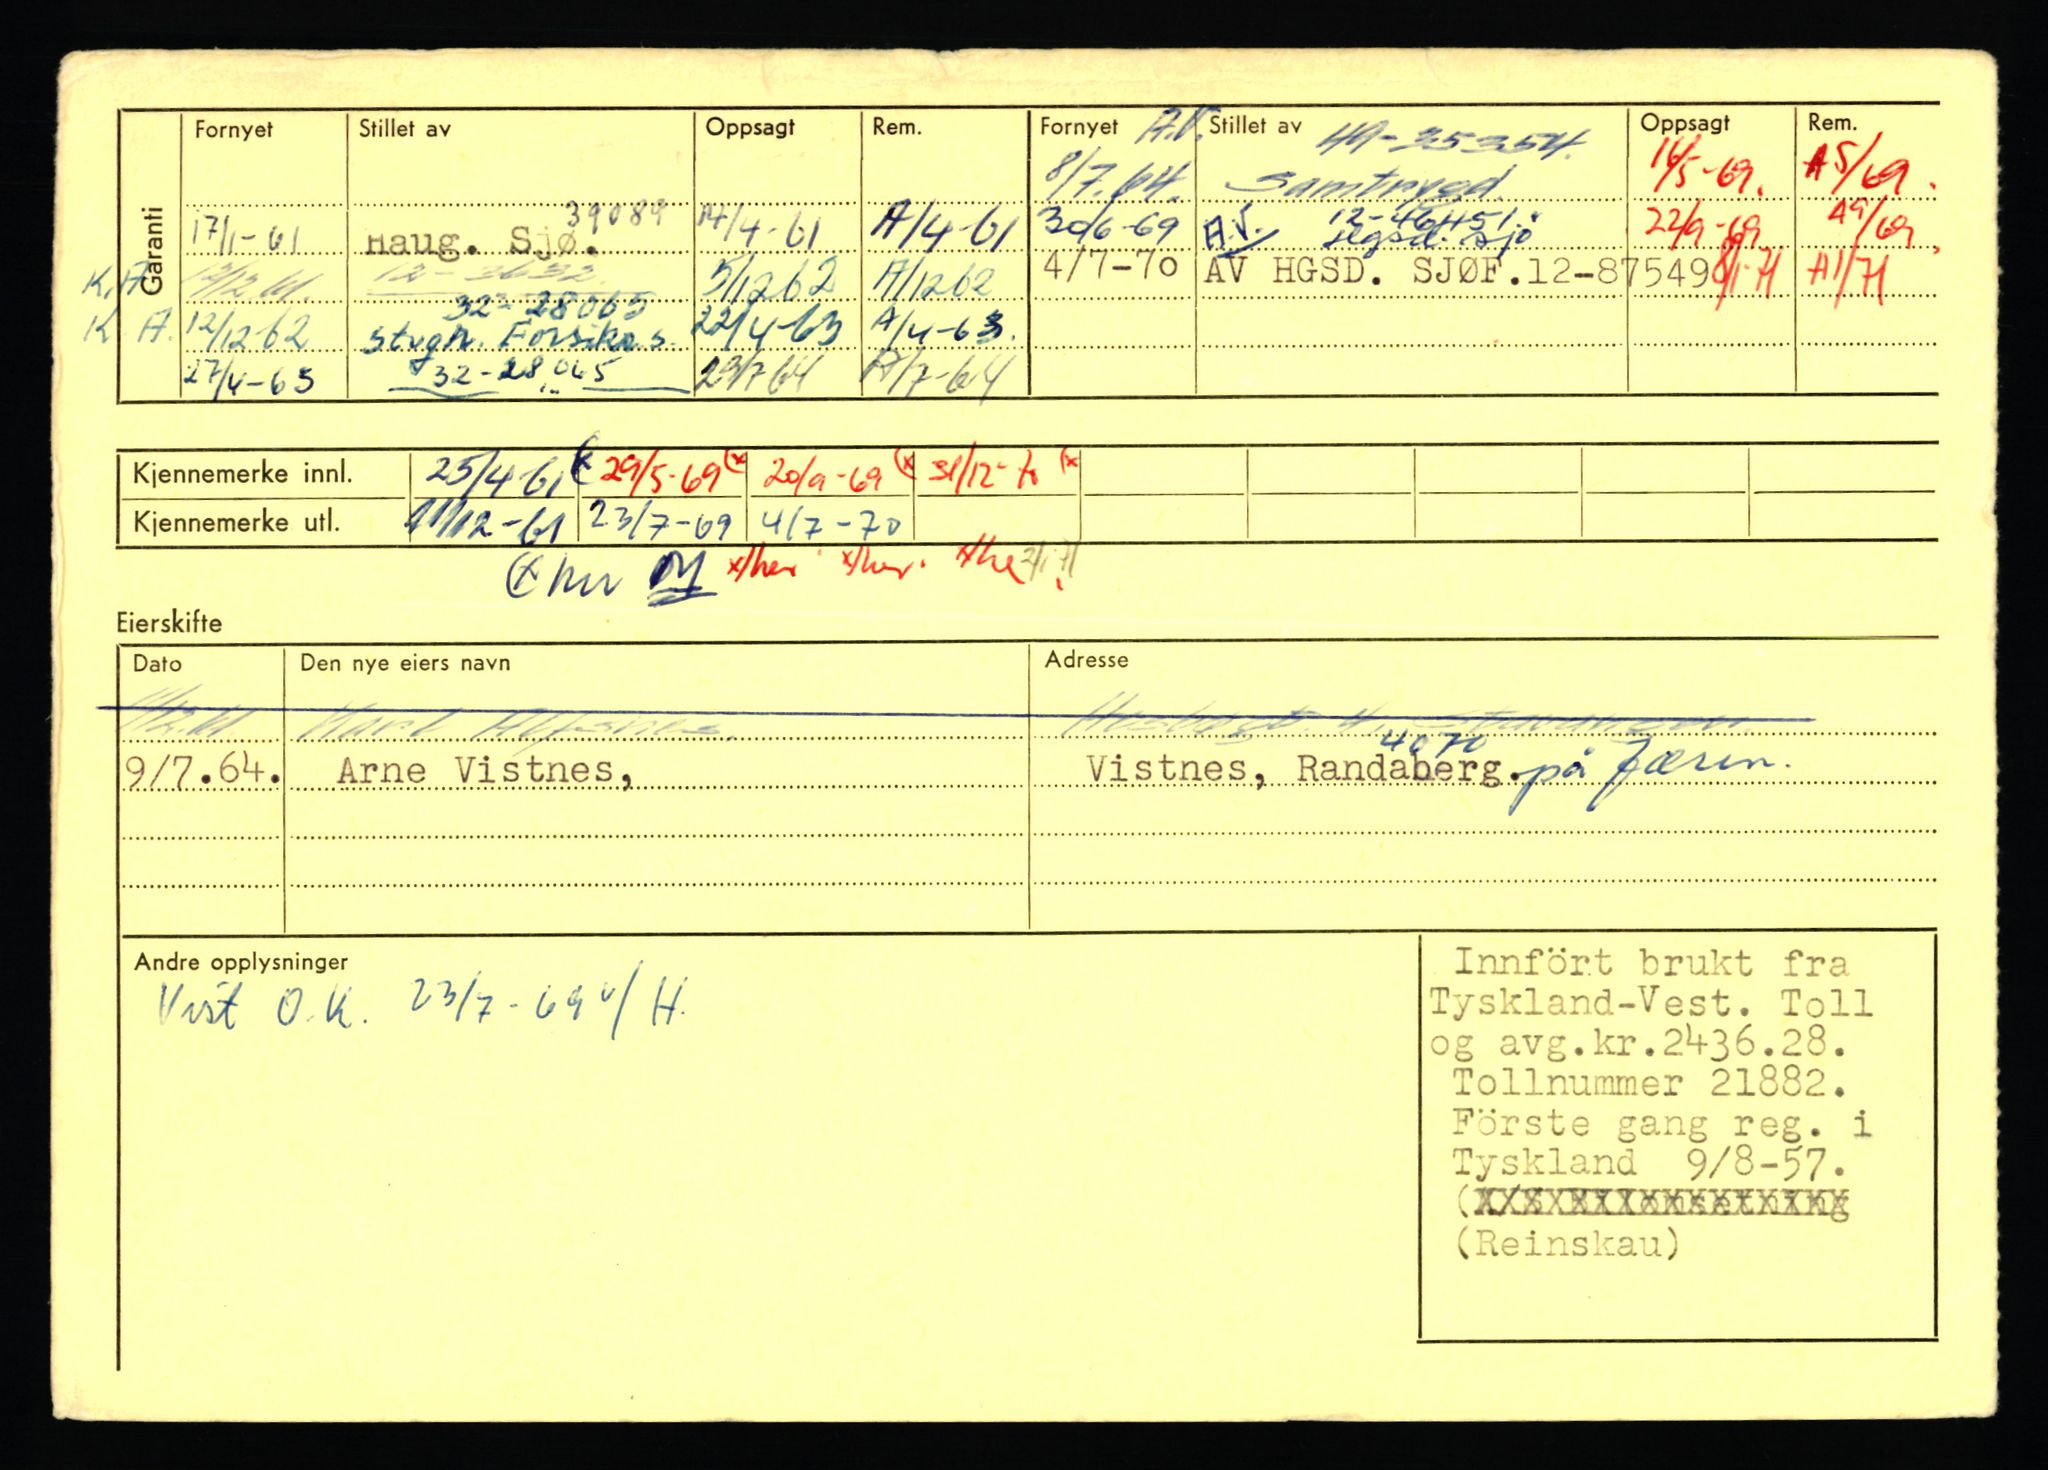 Garanti
Fornyet Stillet av Oppsagt Rem. Fornyet A.V. Stillet av 49-35354. Oppsagt Rem.
8/7.64. Samtrygd. 16/5-69. A5/69.
17/1-61 Haug. Sjø. 39089 14/4-61 A/4-61 30/6-69 A.V. 12-46451 Hgsd. Sjø 22/9-69 A9/69.
K.A 12-3632. 5/12 62 A/12 62 4/7-70 AV HGSD. SJØF.12-87549 8/1-71 A1/71
32-28065
K A. 12/12-62 Stvgr. Forsikr.s. 22/4-63 A/4-63.
27/4-63 32-28065 23/7 64 A/7-64
Kjennemerke innl. 25/4-61 (x 29/5-69 (x 20/9-69 (x 31/12-70 (x
Kjennemerke utl. 11/12-61 23/7-69 4/7-70
(x her x/her x/her. x/he 2/1.71
Eierskifte
Dato Den nye eiers navn Adresse
4070
9/7.64. Arne Vistnes, Vistnes, Randaberg. på Jæren.
Andre opplysninger
Vist O.K. 23/7-69 v/ H.
Innfört brukt fra
Tyskland-Vest. Toll
og avg.kr.2436.28.
Tollnummer 21882.
Förste gang reg. i
Tyskland 9/8-57.
(Reinskau)